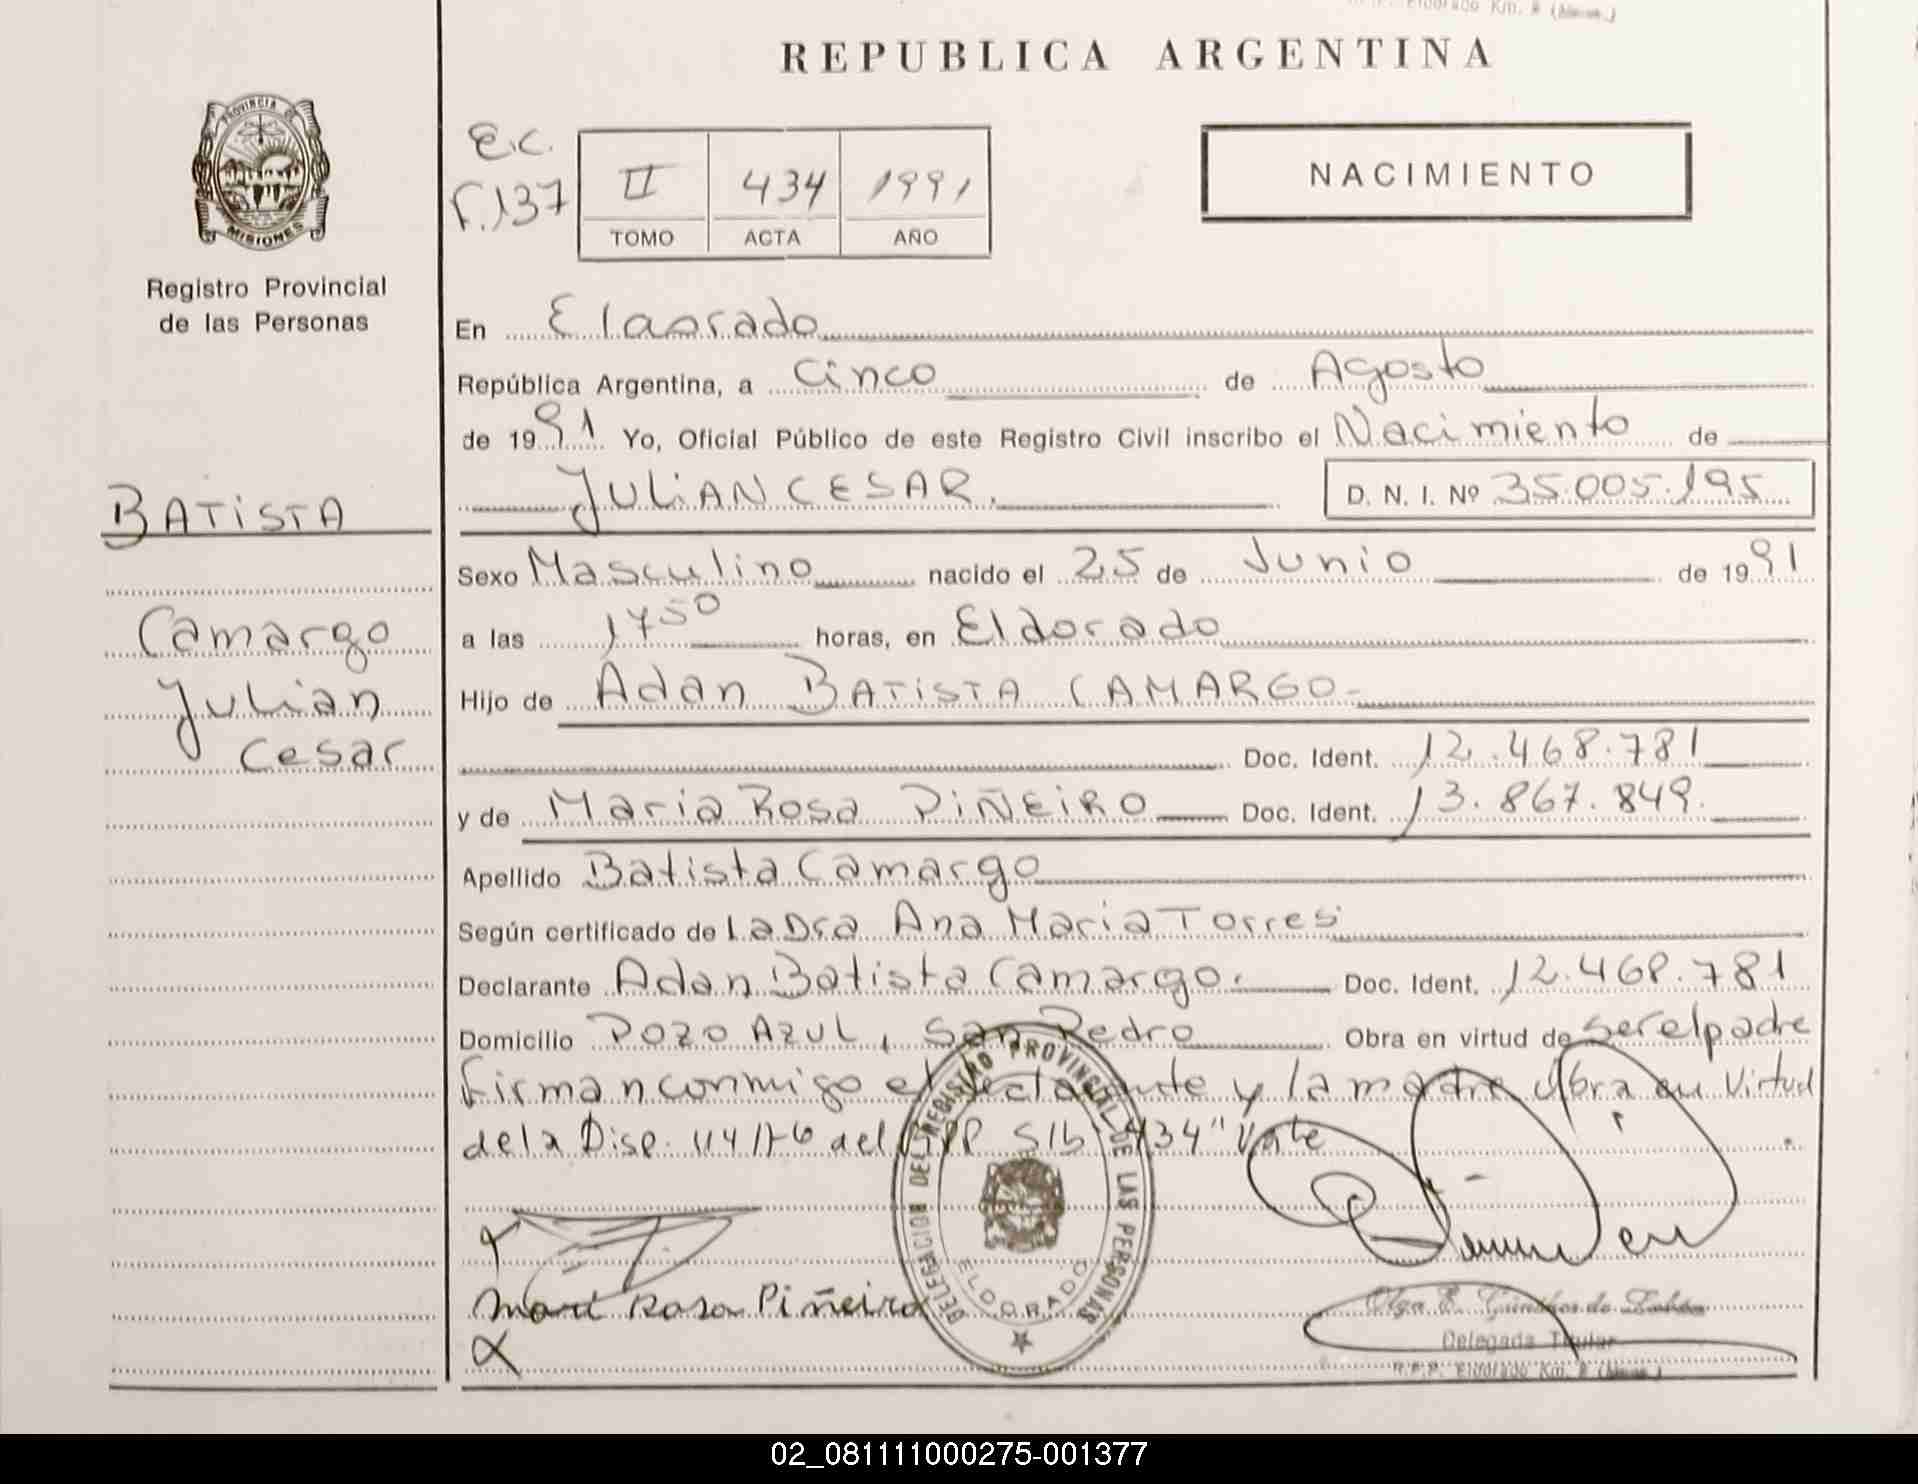 REPUBLICA ARGENTINA
PROVINCIA DE
MISIONES
Registro Provincial
de las Personas
E.C.
F.137
II 434 1991
TOMO ACTA AÑO
NACIMIENTO
En Eldorado
República Argentina, a Cinco de Agosto
de 1991 Yo, Oficial Público de este Registro Civil inscribo el Nacimiento de
JULIAN CESAR. D. N. I. Nº 35.005.195
BATISTA
Camargo
Julian
Cesar
Sexo Masculino nacido el 25 de Junio de 1991
a las 1750 horas, en Eldorado
Hijo de Adan BATISTA CAMARGO-
Doc. Ident. 12.468.781
y de Maria Rosa PIÑEIRO Doc. Ident. 13.867.849.
Apellido Batista Camargo
Según certificado de la Dra Ana Maria Torres
Declarante Adan Batista Camargo. Doc. Ident. 12.468.781
Domicilio POZO AZUL, San Pedro Obra en virtud de ser el padre
Firman conmigo el declarante y la madre Obra en Virtud
de la Disp. 114/76 del RPP S/b "434" Vale
Mari Rosa Piñeiro
DELEGACION DEL REGISTRO PROVINCIAL DE LAS PERSONAS
ELDORADO
Delegada Titular
R.P.P. Eldorado Km.
02_081111000275-001377